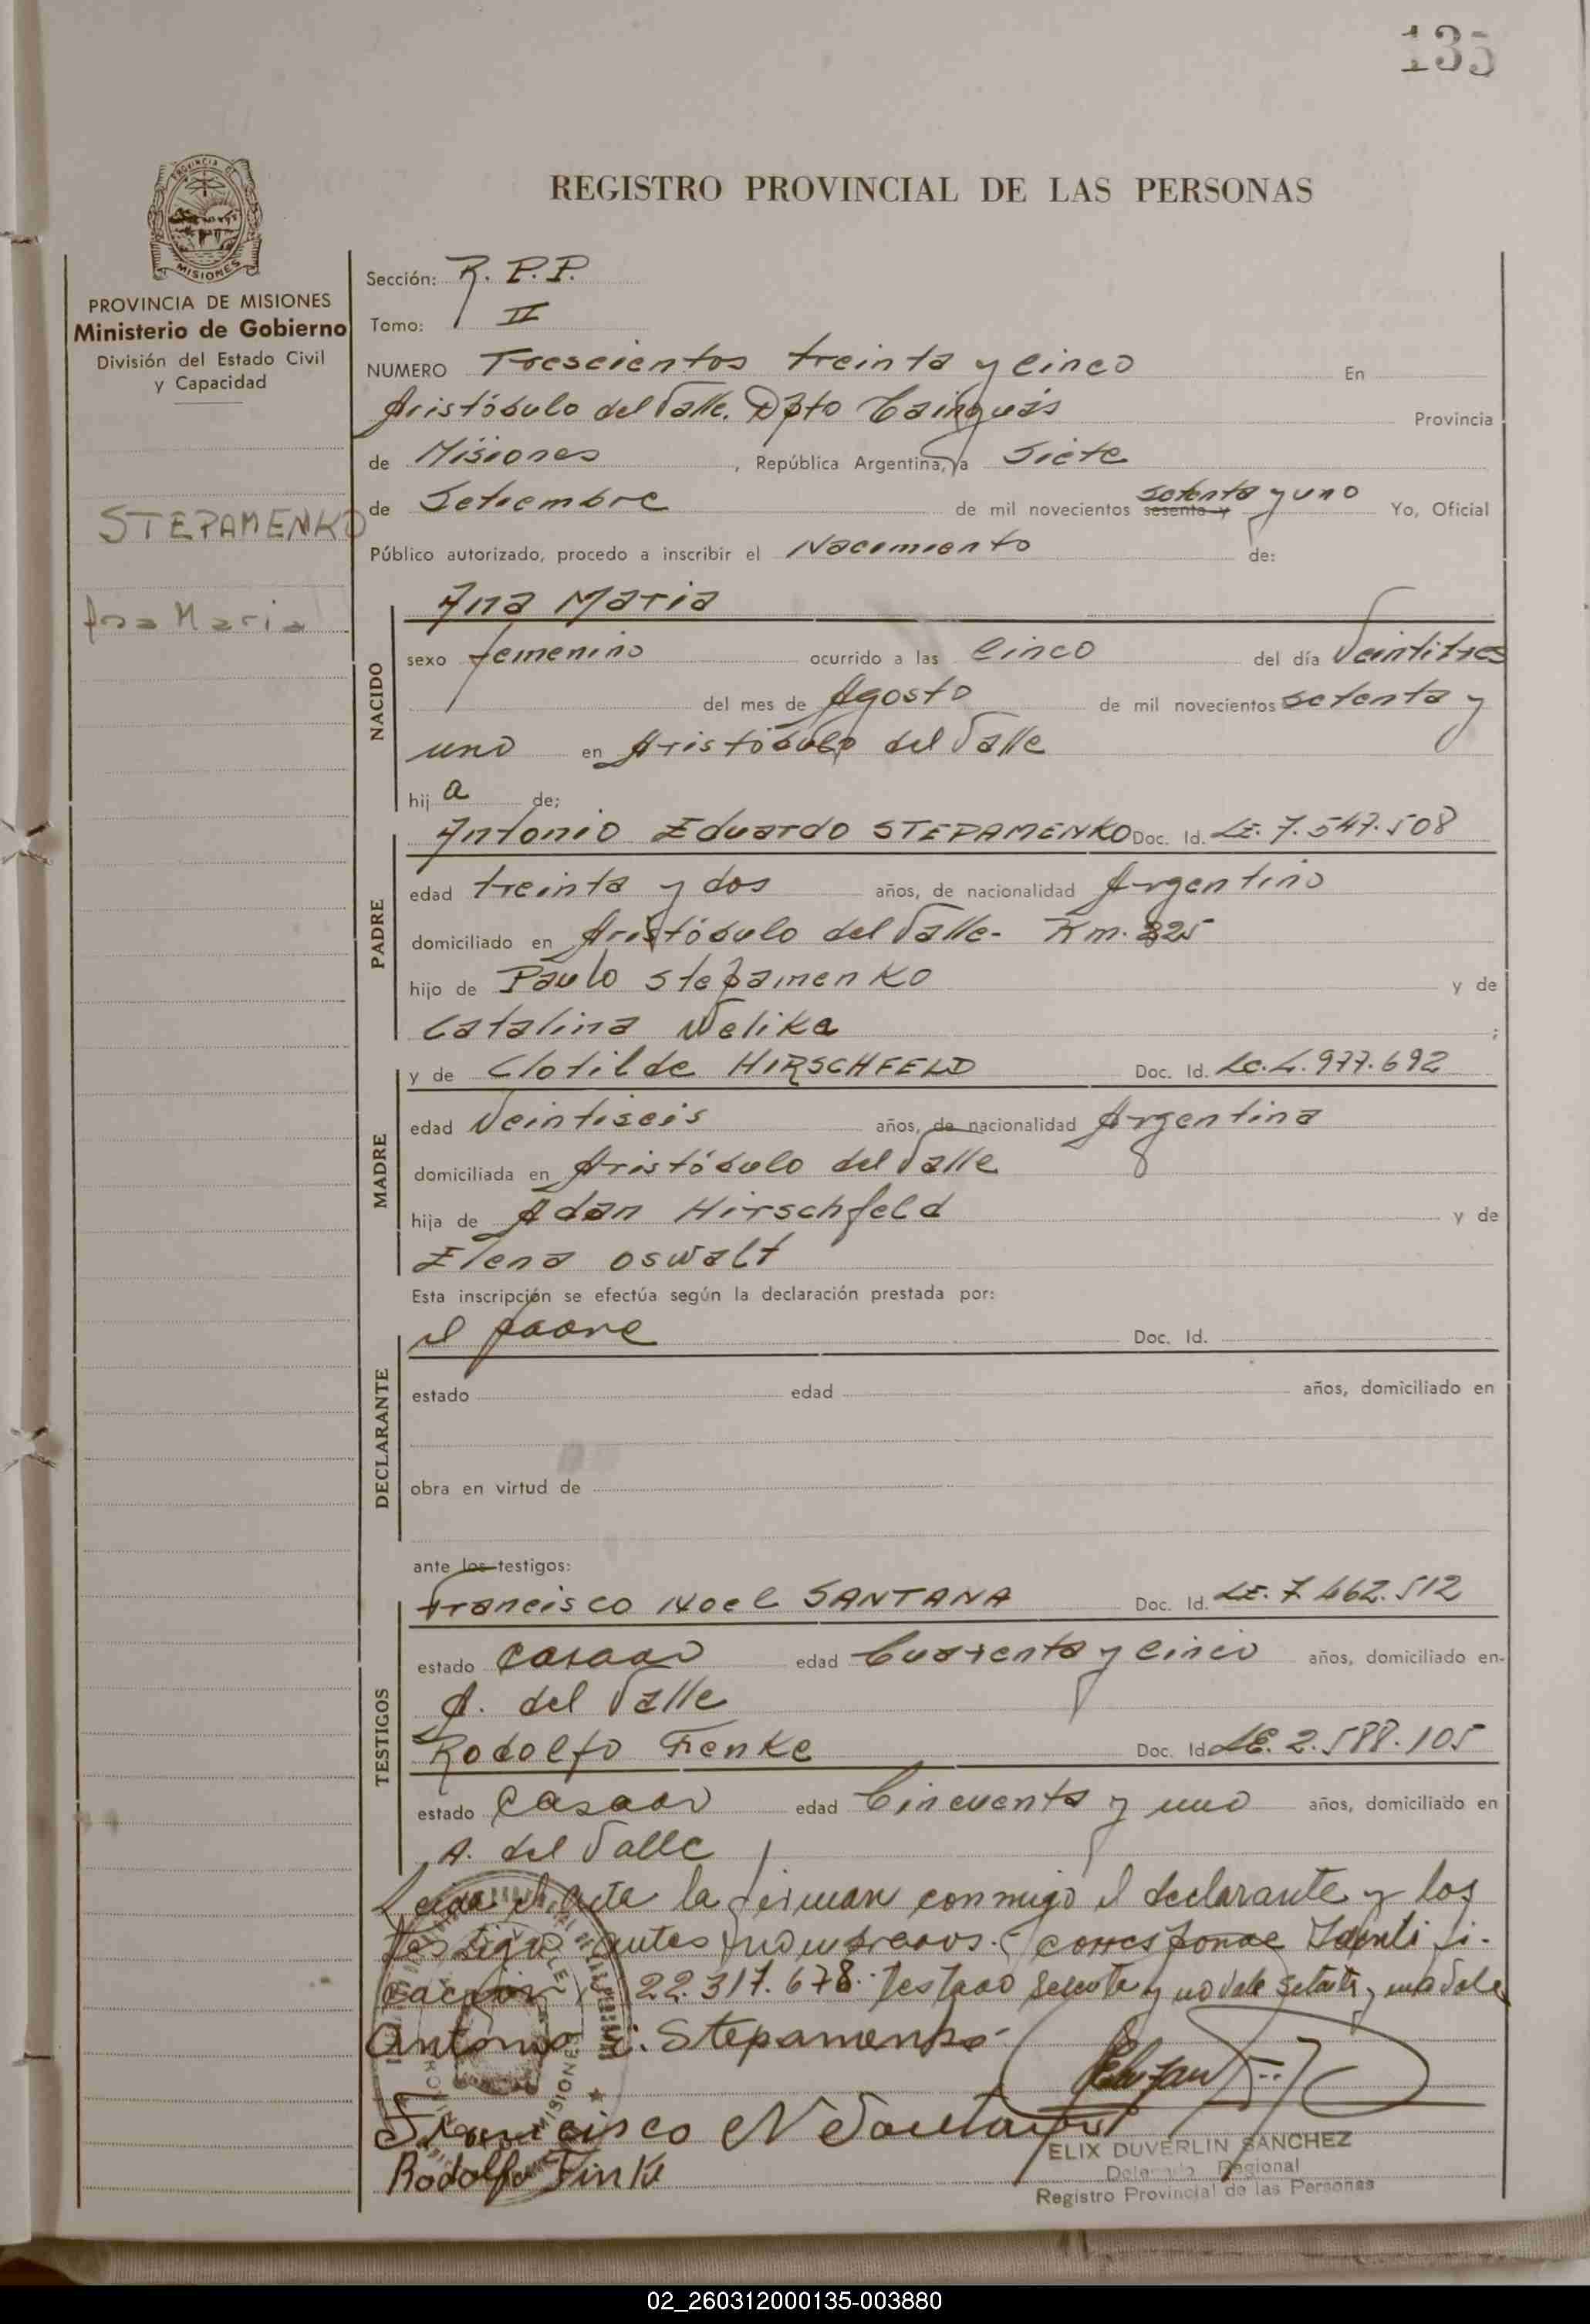 135
PROVINCIA DE
MISIONES
PROVINCIA DE MISIONES
Ministerio de Gobierno
División del Estado Civil
y Capacidad
STEPAMENKO
Ana Maria
REGISTRO PROVINCIAL DE LAS PERSONAS
Sección: R. P. P.
Tomo: II
NUMERO Trescientos treinta y cinco En
Aristóbulo del Valle. Dpto Cainguás Provincia
de Misiones, República Argentina, a Siete
de Setiembre de mil novecientos sesenta y setenta y uno Yo, Oficial
Público autorizado, procedo a inscribir el Nacimiento de:
NACIDO
Ana Maria
sexo femenino ocurrido a las Cinco del día Veintitres
del mes de Agosto de mil novecientos setenta y
uno en Aristóbulo del Valle
hij a de;
PADRE
Antonio Eduardo STEPAMENKO Doc. Id. LE. 7.547.508
edad treinta y dos años, de nacionalidad Argentino
domiciliado en Aristóbulo del Valle- Km. 225
hijo de Paulo Stepamenko y de
Catalina Welike ;
MADRE
y de Clotilde HIRSCHFELD Doc. Id. LC. 4.977.692
edad Veintiseis años, de nacionalidad Argentina
domiciliada en Aristóbulo del Valle
hija de Adan Hirschfeld y de
Elena Oswalt
Esta inscripción se efectúa según la declaración prestada por:
DECLARANTE
el padre Doc. Id.
estado edad años, domiciliado en
obra en virtud de
ante los testigos:
TESTIGOS
Francisco Noel SANTANA Doc. Id. LE. 7.462.512
estado Casado edad Cuarenta y cinco años, domiciliado en
A. del Valle
Rodolfo Fenke Doc. Id. LE. 2.588.105
estado Casado edad Cincuenta y uno años, domiciliado en
A. del Valle
Leida el acta la firman conmigo el declarante y los
testigos antes nombrados.- corresponde Identifi-
cación 22.317.678.- Testado sesenta y no vale setenta y uno vale
Antonio E. Stepamenko
Francisco N Santana
Rodolfo Finke
ELIX DUVERLIN SANCHEZ
Delegado Regional
Registro Provincial de las Personas
02_260312000135-003880